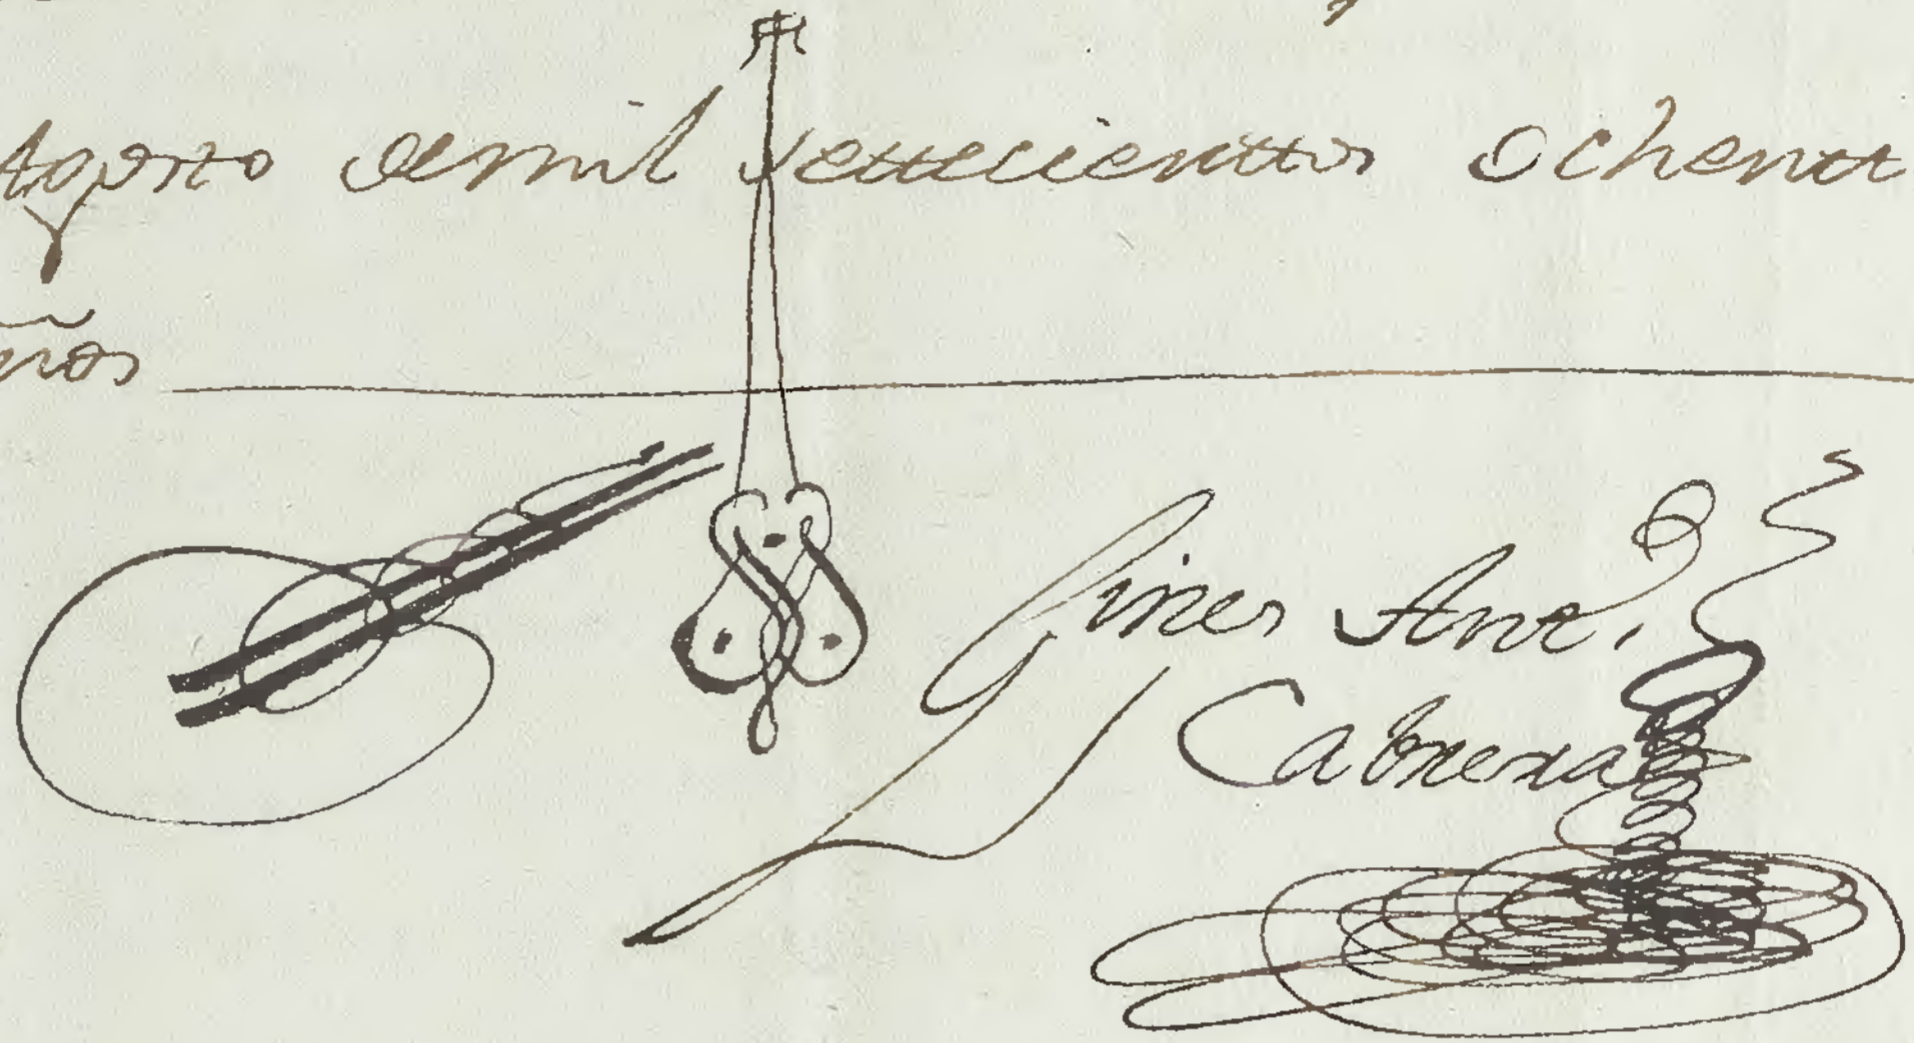 Agosto demil settecienttos ochentt
ños
Gines Antº.
Cabrera